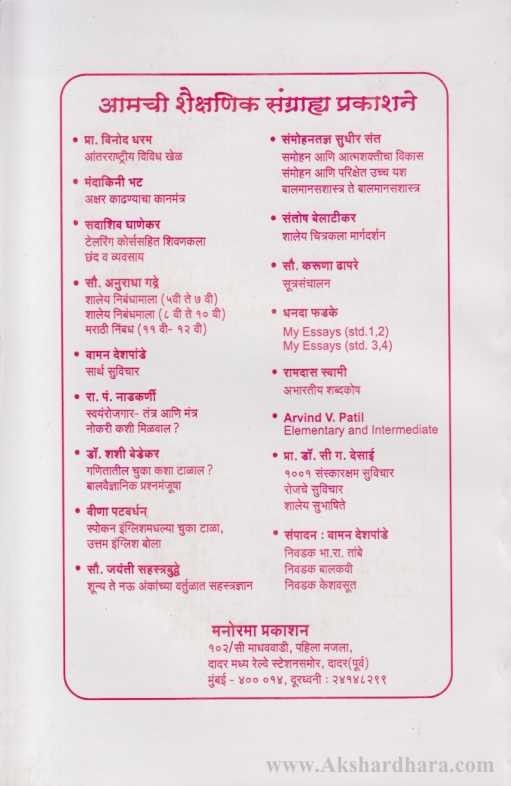 आमची शैक्षणिक संग्राह्य प्रकाशने
• प्रा. विनोद धरम
आंतरराष्ट्रीय विविध खेळ
• मंदाकिनी भट
अक्षर काढण्याचा कानमंत्र
• सदाशिव घाणेकर
टेलरिंग कोर्ससहित शिवणकला
छंद व व्यवसाय
• सौ. अनुराधा गद्रे
शालेय निबंधमाला (५वी ते ७ वी)
शालेय निबंधमाला (८ वी ते १० वी)
मराठी निंबध (११ वी- १२ वी)
• वामन देशपांडे
सार्थ सुविचार
• रा. पं. नाडकर्णी
स्वयंरोजगार- तंत्र आणि मंत्र
नोकरी कशी मिळवाल ?
• डॉ. शशी बेडेकर
गणितातील चुका कशा टाळाल ?
बालवैज्ञानिक प्रश्नमंजूषा
• वीणा पटवर्धन्
स्पोकन इंग्लिशमधल्या चुका टाळा,
उत्तम इंग्लिश बोला
• सौ. जयंती सहस्त्रबुद्धे
शून्य ते नऊ अंकांच्या वर्तुळात सहस्त्रज्ञान
• संमोहनतज्ञ सुधीर संत
समोहन आणि आत्मशक्तीचा विकास
संमोहन आणि परिक्षेत उच्च यश
बालमानसशास्त्र ते बालमानसशास्त्र
• संतोष बेलाटीकर
शालेय चित्रकला मार्गदर्शन
• सौ. करूणा ढापरे
सूत्रसंचालन
• धनदा फडके
My Essays (std.1,2)
My Essays (std. 3,4)
• रामदास स्वामी
अभारतीय शब्दकोष
• Arvind V. Patil
Elementary and Intermediate
• प्रा. डॉ. सी ग. देसाई
१००१ संस्कारक्षम सुविचार
रोजचे सुविचार
शालेय सुभाषिते
• संपादन : वामन देशपांडे
निवडक भा.रा. तांबे
निवडक बालकवी
निवडक केशवसूत
मनोरमा प्रकाशन
१०२/सी माधववाडी, पहिला मजला,
दादर मध्य रेल्वे स्टेशनसमोर, दादर(पूर्व)
मुंबई - ४०० ०१४, दूरध्वनी : २४१४८२९९
www.Akshardhara.com